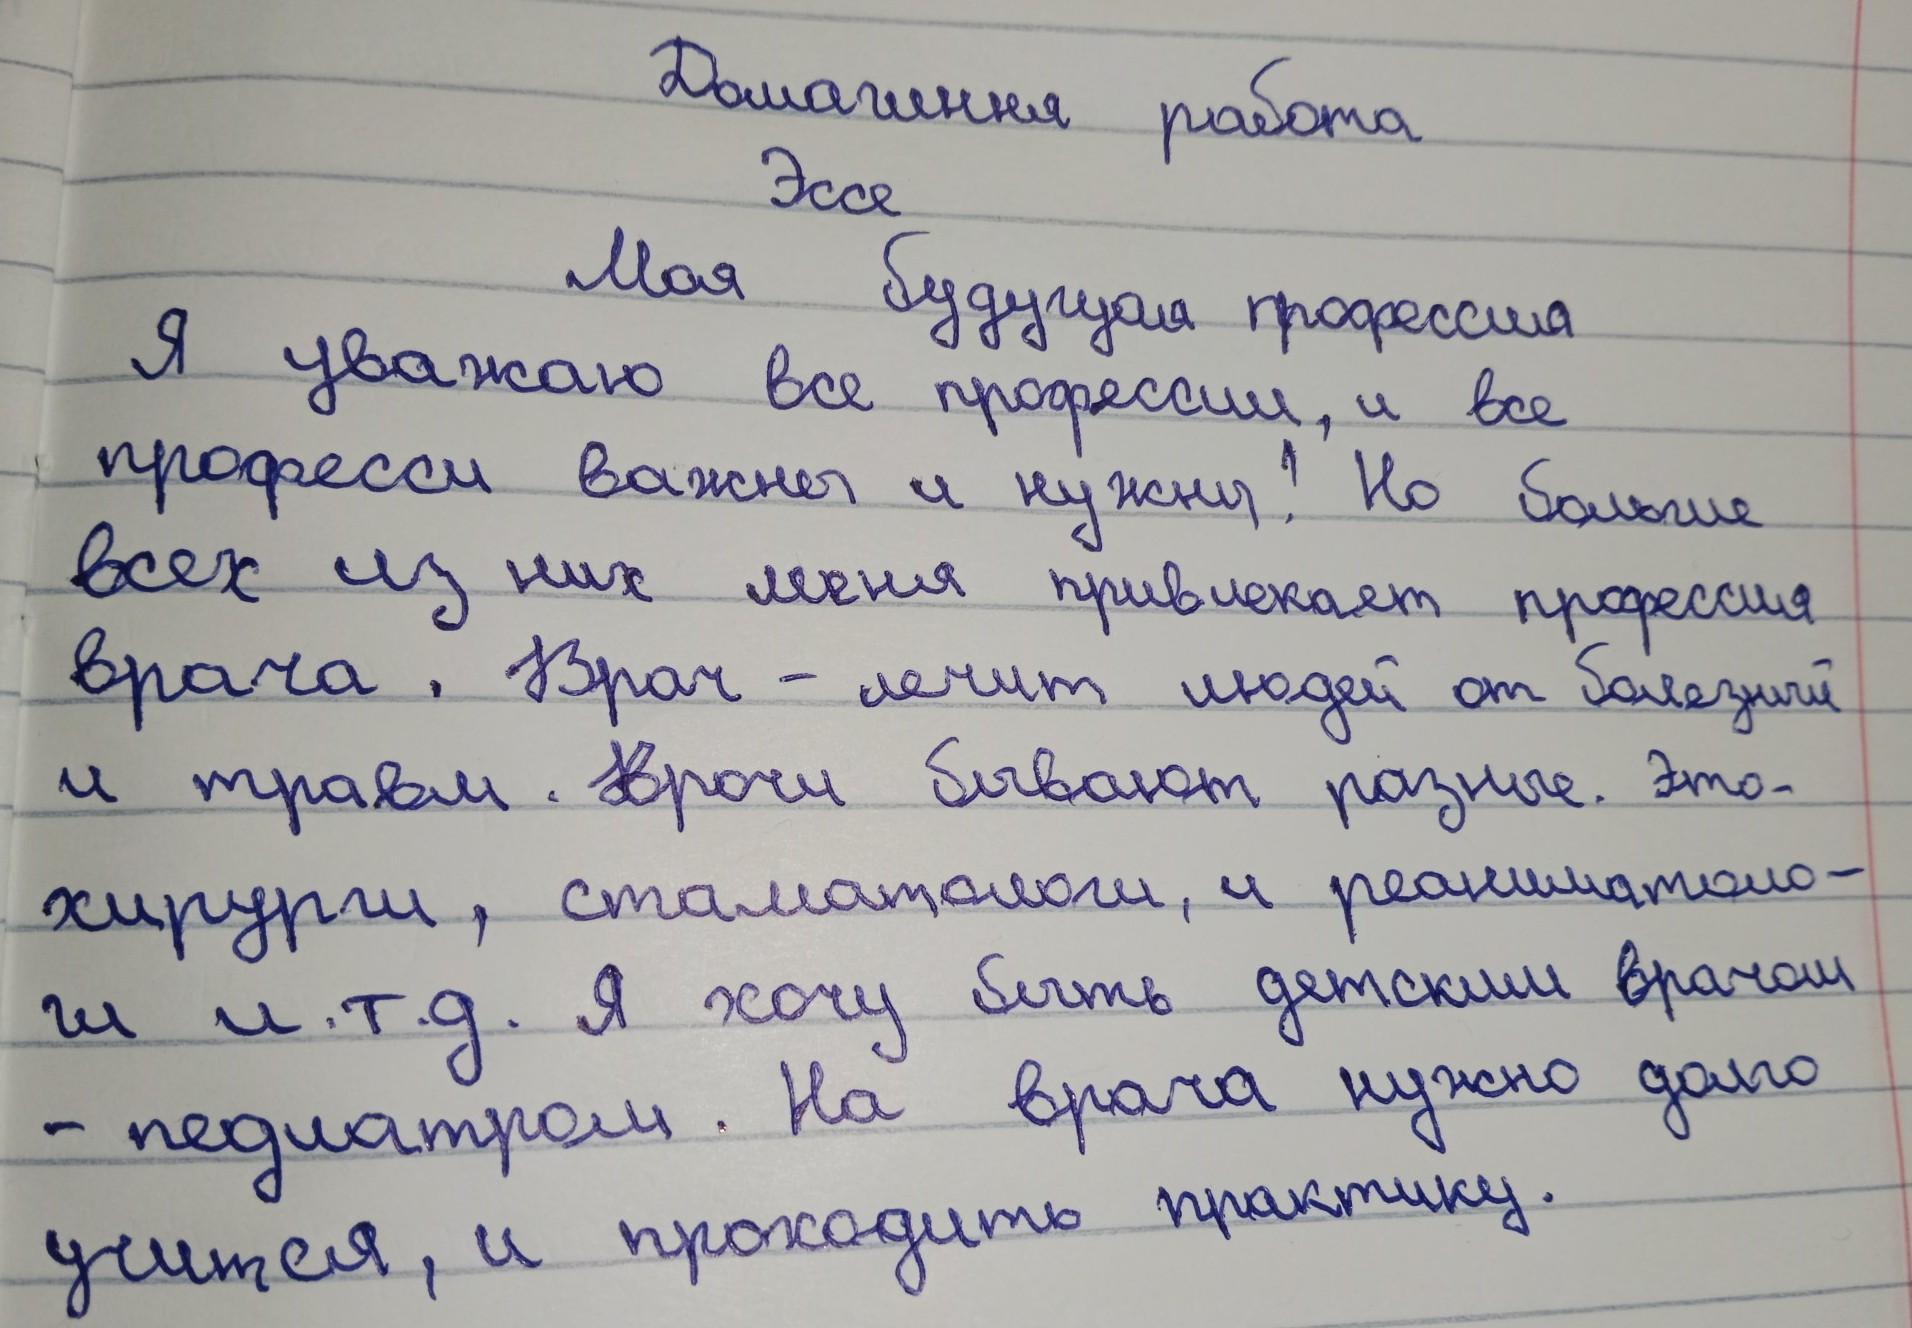 Домашння работа
Эссе
Моя будущая профессия
Я уважаю все профессии, и все
професси важны и нужны! Но больше
всех из них меня привлекает профессия
врача. Врач - лечит людей от болезний
и травм. Врочи бывают разные. Это-
хирурги, стаматологи, и реаниматоло-
ги и.т.д. Я хочу быть детским врачом
- педиатром. На врача нужно долго
учится, и проходить практику.